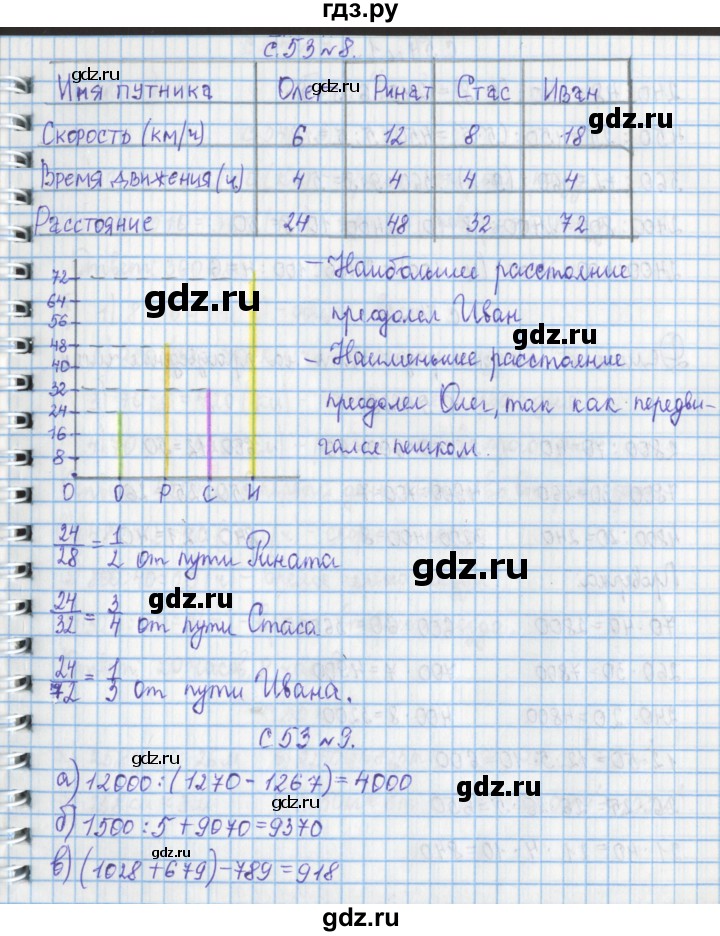 гдз.ру
с.53 №8.
gdz.ru
Имя путника Олег Ринат Стас Иван
gdz.ru
gdz.ru
Скорость (км/ч) 6 12 8 18
Время движения (ч) 4 4 4 4
Расстояние 24 48 32 72
72
64
56
48
40
32
24
16
8
0 О Р С И
gdz.ru
- Наибольшее расстояние
преодолел Иван
gdz.ru
- Наименьшее расстояние
преодолел Олег, так как передви-
гался пешком.
24/28 = 1/2 от пути Рината
gdz.ru
24/32 = 3/4 от пути Стаса
gdz.ru
24/72 = 1/3 от пути Ивана.
gdz.ru
с 53 №9.
gdz.ru
а) 12000:(1270-1267)=4000
gdz.ru
gdz.ru
б) 1500:5+9070=9370
в) (1028+679)-789=918
gdz.ru
gdz.ru